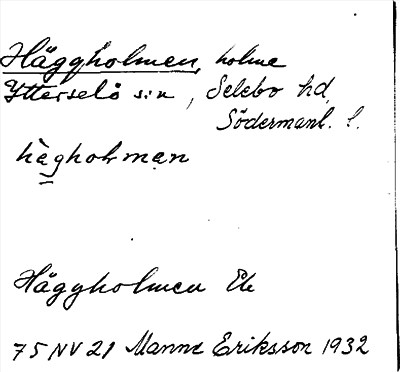 Häggholmen, holme
Ytterselö s:n, Selebo hd,
Södermanl. l.
hägholmæn
Häggholmen Ek
75 NV 21 Manne Eriksson 1932